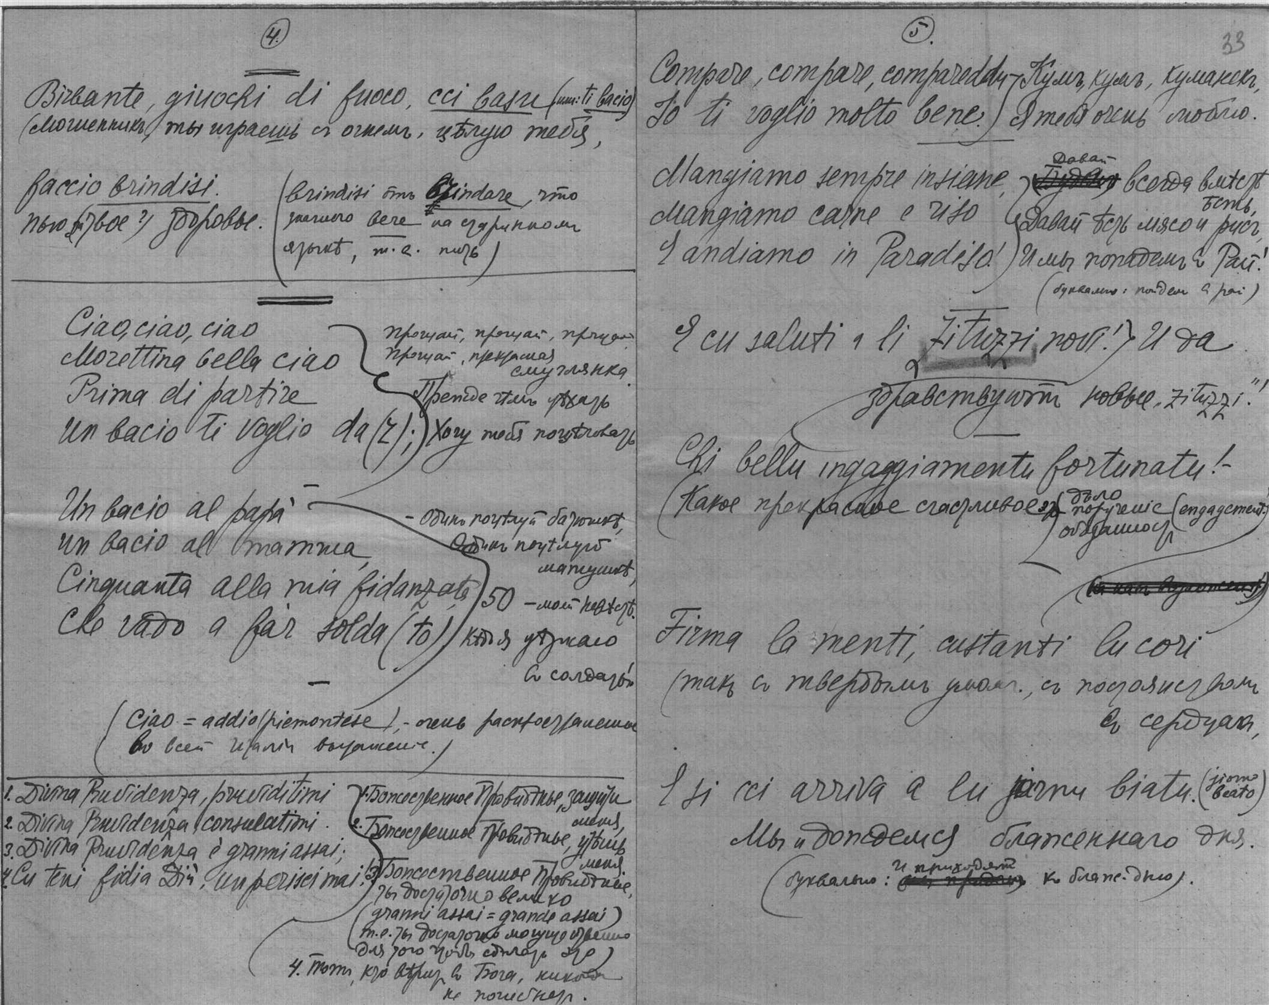 4.
Birbante, giuochi di fuoco, cci basu (или: ti bacio)
(Мошенникъ, ты играешь съ огнемъ, цѣлую тебя,
faccio brindisi.
пью (твое?) здоровье.
(brindisi отъ brindare, что
значило bere на старинномъ
языкѣ, т.е. пить)
Ciao, ciao, ciao
Morettina bella ciao
Prima di partire
Un bacio ti voglio da(r);
Прощай, прощай, прощай
Прощай, прекрасная
смуглянка.
Прежде чѣмъ уѣхать
Хочу тебя поцѣловать
Un bacio al papà
Un bacio al mamma
Cinquanta alla mia fidanzata
Che vado a far solda(to).
- Одинъ поцѣлуй батюшкѣ,
Одинъ поцѣлуй
матушкѣ,
50 - моей невѣстѣ.
уѣзжаю
въ солдаты
(Ciao = addio (piemontese), - очень распространенное
во всей Италіи выраженіе.)
1. Divina Pruvidenza, pruviditimi
2. Divina Pruvidenza cunsulatimi.
3. Divina Pruvidenza è granni assai;
4. Cu teni fidia Diu, un perisci mai!
1. Божественное Провидѣніе, защити
меня,
2. Божественное Провидѣніе, утѣшь
меня
3. Божественное Провидѣніе,
ты достаточно велико
(granni assai = grande assai)
т.е. ты достаточно могущественно
для того чтобъ сдѣлать это)
4. Тотъ, кто вѣритъ въ Бога, никогда
не погибнетъ.
5.
33
Compare, compare, compareddu
Io ti voglio molto bene.)
Кумъ, кумъ, куманекъ,
Я тебя очень люблю.
Mangiamo sempre insieme,
Mangiamo carne e riso
E andiamo in Paradiso!
Давай всегда вмѣстѣ
ѣсть,
Давай ѣсть мясо и рисъ,
И мы попадемъ въ Рай!
(буквально: пойдемъ въ рай)
E cu saluti a li zituzzi novi! И да
здравствуютъ новые "zituzzi"!
Chi bellu ingaggiamentu fortunatu!-
(Какое прекрасное счастливое
дѣло
порученіе (engagement)
Firma la menti, custanti lu cori
(такъ съ твердымъ умомъ, съ постояннымъ
въ сердцахъ,
E si ci arriva a lu jornu biatu. (giorno
beato)
Мы и дождемся блаженнаго дня.
(буквально: и приходятъ къ блаж. дню).